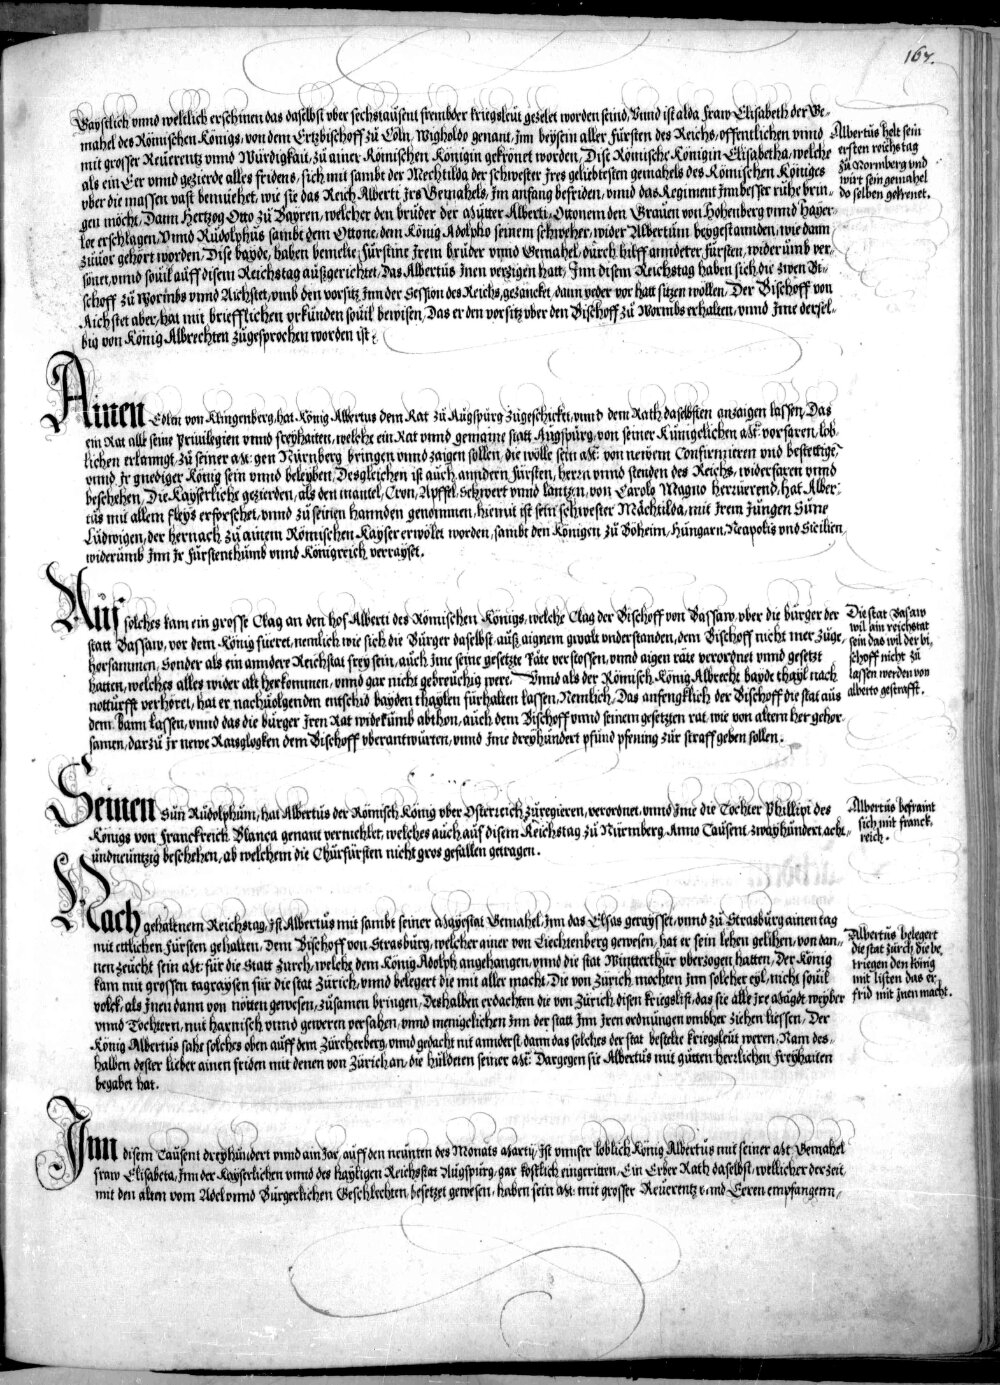 167.
Gaystlich vnnd weltlich erschinen das daselbst vber sechstausent frembder kriegsleut gezelet worden seind, Vnnd ist alda fraw Elisabeth der Ge-
mahel des Römischen Königs, von dem Ertzbischoff zu Cöln, Wigholdo genant, Inn beysein aller Fürsten des Reichs, offentlichen vnnd
mit grosser Reuerentz vnnd Würdigkait, zu ainer Römischen Königin gekrönet worden, Dise Römische Königin Elisabetha, welche
als ein Eer vnnd gezierde alles fridens, sich mit sambt der Mechtilda der schwester Ires geliebtesten gemahels des Römischen Königes
vber die massen vast bemüehet, wie sie das Reich Alberti Irs Gemahels, Im anfang befriden, vnnd das Regiment Inn besser rühe brin-
gen möcht, Dann Hertzog Otto zu Bayren, welcher den brüder der Mütter Alberti, Ottonem den Grauen von Hohenberg vnnd Hayer-
loe erschlagen, Vnnd Rüdolphüs sambt dem Ottone, dem König Adolpho seinem schweher, wider Albertüm beygestannden, wie dann
züuor gehört worden, Dise bayde, haben bemelte fürstine Irem brüder vnnd Gemahel, dürch hilff annderer fürsten, widerümb ver-
sönet, vnnd souil aüff disem Reichstag außgerichtet, Das Albertüs Inen verzigen hatt, Inn disem Reichstag haben sich die zwen Bi-
schoff zu Wormbs vnnd Aichstet, vmb den vorsitz Inn der Session des Reichs, gezancket, dann yeder vor hatt sitzen wollen, Der Bischoff von
Aichstet aber, hat mit briefflichen vrkünden souil bewisen, Das er den vorsitz vber den Bischoff zu Wormbs erhalten, vnnd Ime dersel-
big von König Albrechten zügesprochen worden ist.
Albertüs helt sein
ersten reichstag
zu Nornberg vnd
wirt sein gemahel
do selben gekrenet.
Ainen Edlen von Klingenberg, hat König Albertus dem Rat zu Augspürg zügeschicket, vnnd dem Rath daselbsten anzaigen lassen, Das
ein Rat alle seine Priuilegien vnnd freyhaiten, welche ein Rat vnnd gemaine statt Augspürg, von seiner Künigelichen Mt: vorfaren, lob-
lichen erlanngt, zu seiner Mt: gen Nürnberg bringen vnnd zaigen sollen, die wölle sein Mt: von neuem Confirmieren vnd bestettige,
vnnd Ir gnediger König sein vnnd beleyben, Desgleichen ist auch anndern Fürsten, herrn vnnd stenden des Reichs, widerfaren vnnd
beschehen, Die Kayserliche gezierden, als den mantel, Cron, Apffel, Schwert vnnd lantzen, von Carolo Magno herrüerend, hat Alber-
tüs mit allem fleys erforschet, vnnd zu seinen hannden genommen, hiemit ist sein schwester Mächtilda, mit Irem Jüngen Süne
Lüdwigen, der hernach zu ainem Römischen Kayser erwölet worden, sambt den Königen zu Böheim, Hüngarn, Neapolis vnd Sicilien,
widerümb Inn Ir Fürstenthümb vnnd Königreich verrayset.
Auf solches kam ein grosse Clag an den hof Alberti des Römischen Königs, welche Clag der Bischoff von Bassaw, vber die bürger der
statt Bassaw, vor dem König füeret, nemlich wie sich die Bürger daselbst, auß aignem gwalt vnderstanden, dem Bischoff nicht mer züge-
horsammen, Sonder als ein anndere Reichstat frey sein, auch Ime seine gesetzte Räte verstossen, vnnd aigen räte verordnet vnnd gesetzt
hatten, welches alles wider alt herkommen, vnnd gar nicht gebreüchig were. Vnnd als der Römisch König Albrecht bayde thayl nach
nottürfft verhöret, hat er nachuolgenden entschid bayden thaylen fürhalten lassen, Nemlich, Das anfengklich der Bischoff die stat aüs
dem Bann lassen, vnnd das die bürger Iren Rat widerümb abthon, auch dem Bischoff vnnd seinem gesetzten rat, wie von altem her gehor-
samen, darzu Ir newe Ratsglogken dem Bischoff vberantwürten, vnnd Ime dreyhündert pfünd pfening zür straff geben sollen.
Die stat Basaw
wil ain reichstat
sein das wil der bi-
schoff nicht zu
lassen werden von
alberto gestrafft.
Seinen Sün Rüdolphüm, hat Albertüs der Römisch König vber Osterreich züregieren, verordnet, vnnd Ime die Tochter Phillipi des
Königs von Franckreich Blanca genant vermehlet, welches auch auf disem Reichstag zu Nürmberg, Anno Tausent zwayhündert acht-
ündneüntzig beschehen, ab welchem die Chürfürsten nicht gros gefallen getragen.
Albertüs befraint
sich mit franck-
reich.
Nach gehaltnem Reichstag, Ist Albertüs mit sambt seiner Mayestat Gemahel, Inn das Elsas gerayset, vnnd zu Strasbürg ainen tag
mit ettlichen Fürsten gehalten, Dem Bischoff von Strasbürg, welcher ainer von Liechtenberg gewesen, hat er sein lehen gelihen, von dan-
nen zeücht sein Mt: für die Statt Zürch, welche dem König Adolph angehangen, vnnd die stat Wintterthür vberzogen hatten, Der König
kam mit grossen tagraysen für die stat Zürich, vnnd belegert die mit aller macht, Die von Zürich mochten Inn solcher eyl, nicht souil
volck, als Inen dann von nötten gewesen, züsamen bringen, Deshalben erdachten die von Zürich, disen kriegslist, das sie alle Ire Mägdt weyber
vnnd Tochtern, mit harnisch vnnd geweren versahen, vnnd menigelichen Inn der statt Inn Iren ordnüngen vmbher ziehen liessen, Der
König Albertüs sahe solches oben auff dem Zürcherberg, vnnd gedacht nit annderst, dann das solches der stat bestelte kriegsleüt weren, Nam des-
halben dester lieber ainen friden mit denen von Zürich an, die hüldeten seiner Mt: Dargegen sie Albertüs mit gütten herrlichen freyhaiten
begabet hat.
Albertüs belegert
die stat zürch die be-
triegen den könig
mit listen das er
frid mit Inen macht.
Inn disem Tausent dreyhündert vnnd ain Jar, auff den neünten des Monats Martij, Ist vnnser löblich König Albertüs mit seiner Mt: Gemahel
fraw Elisabeta, Inn der Kayserlichen vnnd des hayligen Reichsstat Augspürg, gar köstlich eingeritten, Ein Erber Rath daselbst, wellicher derzeit
mit den alten vom Adel vnnd Bürgerlichen Geschlechten, besetzet gewesen, haben sein Mt: mit grosser Reuerentz vnnd Eeren empfangenn,